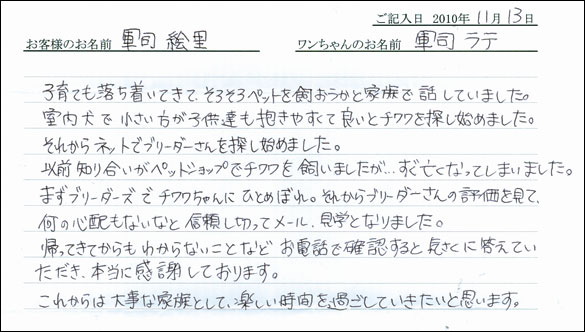 ご記入日 2010年 11月 13日
お客様のお名前 軍司 絵里 ワンちゃんのお名前 軍司 ラテ
子育ても落ち着いてきて、そろそろペットを飼おうかと家族で話していました。
室内犬で小さい方が子供達も抱きやすくて良いとチワワを探し始めました。
それからネットでブリーダーさんを探し始めました。
以前知り合いがペットショップでチワワを飼いましたが…すぐ亡くなってしまいました。
まずブリーダーズでチワワちゃんにひとめぼれ。それからブリーダーさんの評価を見て、
何の心配もないなと信頼し切ってメール、見学となりました。
帰ってきてからもわからないことなどお電話で確認すると気さくに答えてい
ただき、本当に感謝しております。
これからは大事な家族として、楽しい時間を過ごしていきたいと思います。